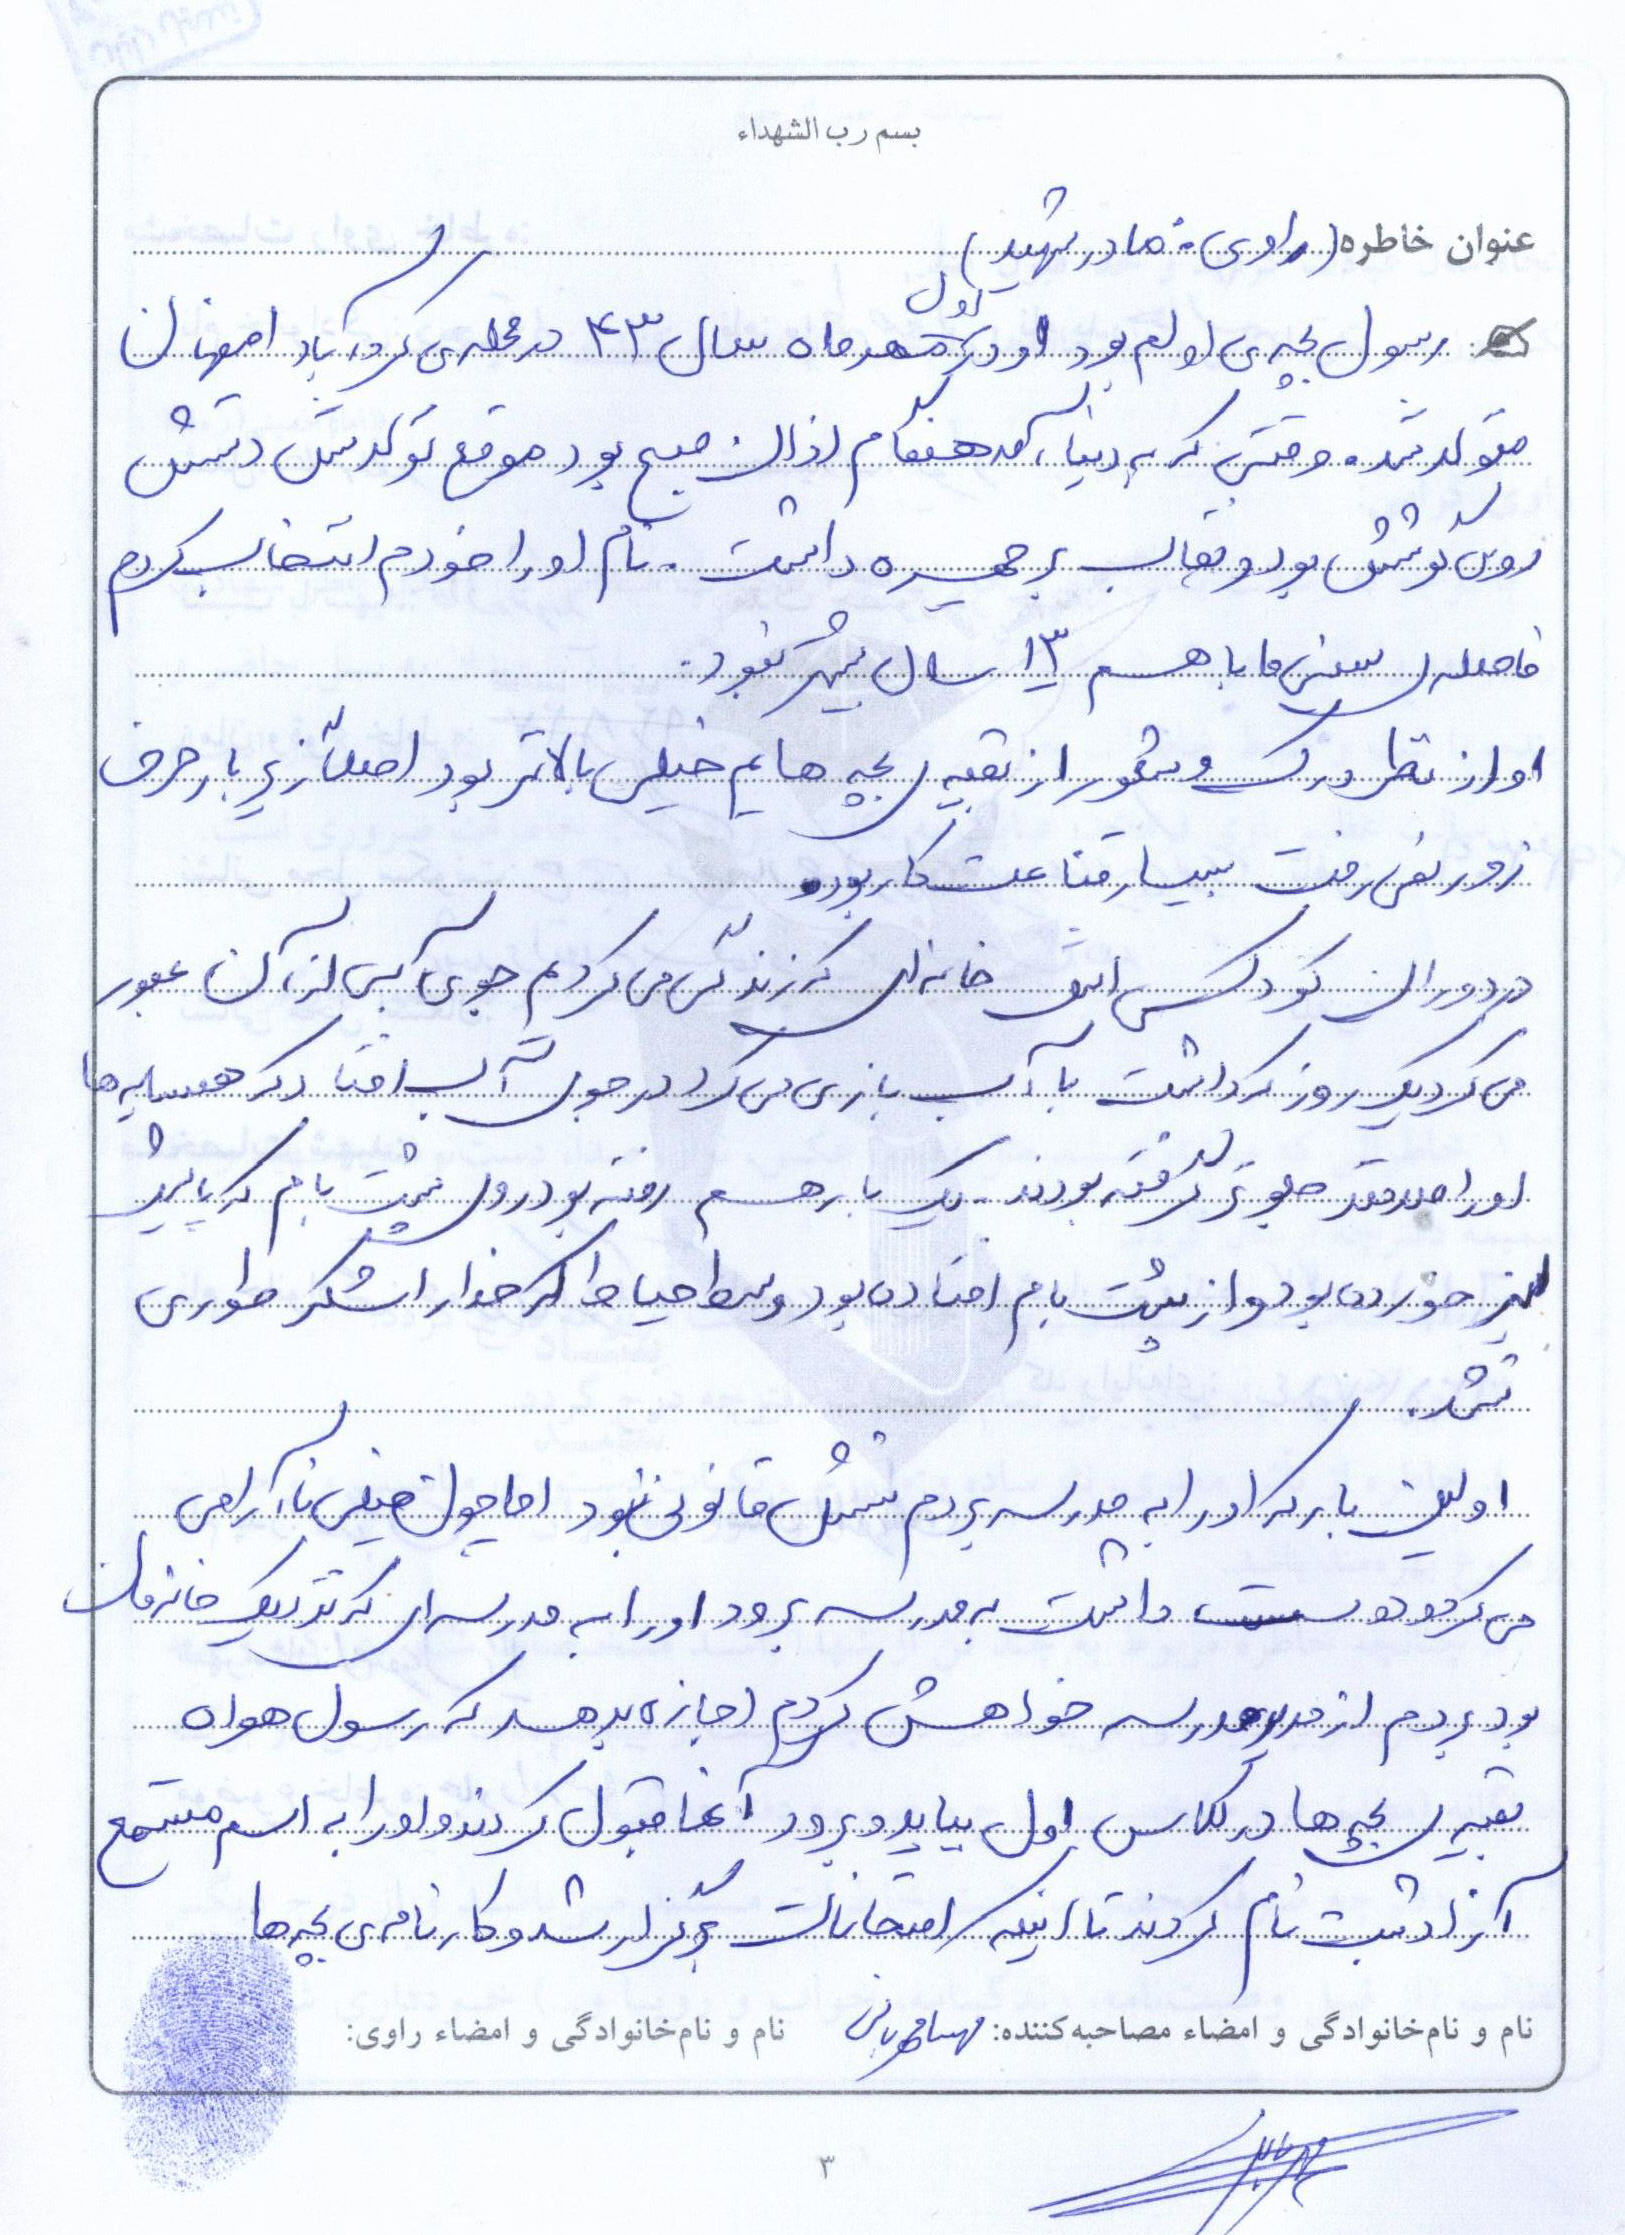 بسم رب الشهداء
عنوان خاطره (راوی: مادر شهید)
رسول بچه‌ی اولم بود او در اول مهر ماه سال ۴۳ در محله‌ی کردآباد اصفهان
متولد شد. وقتی که به دنیا آمد هنگام اذان صبح بود موقع تولدش دستش
روی گوشش بود و نقاب بر چهره داشت. نام او را خودم انتخاب کردم
فاصله‌ی سنی ما با هم ۱۳ سال بیشتر نبود.
او از نظر درک و شعور از بقیه‌ی بچه هایم خیلی بالاتر بود اصلاً زیر بار حرف
زور نمی رفت بسیار قناعت کار بود.
در دوران کودکی اش خانه‌ای که زندگی می کردیم جوی آبی از آن عبور
می کرد یک روز که داشت با آب بازی می کرد در جوی آب افتاد که همسایه ها
او را جلوتر گرفته بودند. یک بار هم رفته بود روی پشت بام که پایش
لیز خورده بود و از پشت بام افتاده بود وسط حیاط که خدا را شکر طوری
نشد.
اولین بار که او را به مدرسه بردم سنش قانونی نبود اما چون خیلی ناآرامی
می کرد و دوست داشت به مدرسه برود او را به مدرسه ای که نزدیک خانه مان
بود بردم از مدیر مدرسه خواهش کردم اجازه بدهد که رسول همراه
بقیه‌ی بچه ها در کلاس اول بیاید و برود آنها قبول کردند و او را به اسم مستمع
آزاد ثبت نام کردند تا اینکه امتحانات برگزار شد و کارنامه‌ی بچه ها
نام و نام‌خانوادگی و امضاء مصاحبه‌کننده:
نام و نام‌خانوادگی و امضاء راوی:
۳